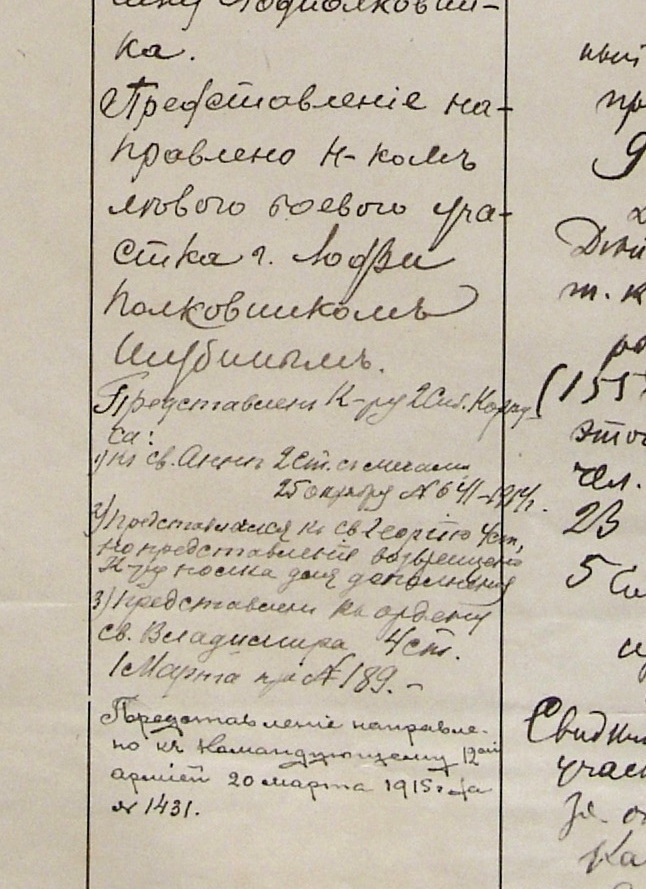 ка.
Представленіе на-
правлено Н-комъ
лѣвого боевого уча-
стка г. Лодзи
Полковникомъ
Шубинымъ.
Представленъ К-ру 2 Сиб. Корпу-
са:
1) къ св. Аннѣ 2 ст. съ мечами
25 октября № 641-1914 г.
2) представлялся къ св. Георгію 4 ст,
но представленіе возвращено
К-ру полка для дополненія
3) представленъ къ ордену
св. Владимира 4 ст.
1 Марта при № 189. -
Представленіе направле-
но къ Командующему 12ой
арміей 20 марта 1915 года
№ 1431.
ный
пр
т. к
(155
этог
чел.
23
5 Си
учас
Ка